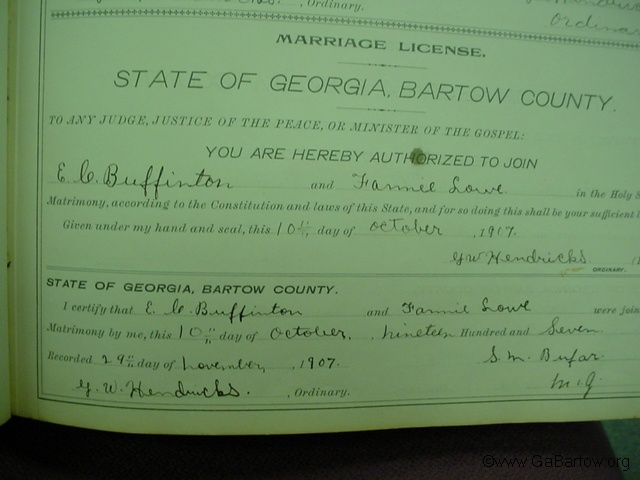 , Ordinary.
Ordina
MARRIAGE LICENSE.
STATE OF GEORGIA, BARTOW COUNTY.
TO ANY JUDGE, JUSTICE OF THE PEACE, OR MINISTER OF THE GOSPEL:
YOU ARE HEREBY AUTHORIZED TO JOIN
E. C. Buffinton and Fannie Lowe in the Holy S
Matrimony, according to the Constitution and laws of this State, and for so doing this shall be your sufficient l
Given under my hand and seal, this 10th day of October , 1907.
G W Hendricks
ORDINARY.
STATE OF GEORGIA, BARTOW COUNTY.
I certify that E. C. Buffinton and Fannie Lowe were join
Matrimony by me, this 10th day of October, nineteen Hundred and Seven
Recorded 29th day of November , 1907. S. M.
G. W. Hendricks. , Ordinary.
©www.GaBartow.org